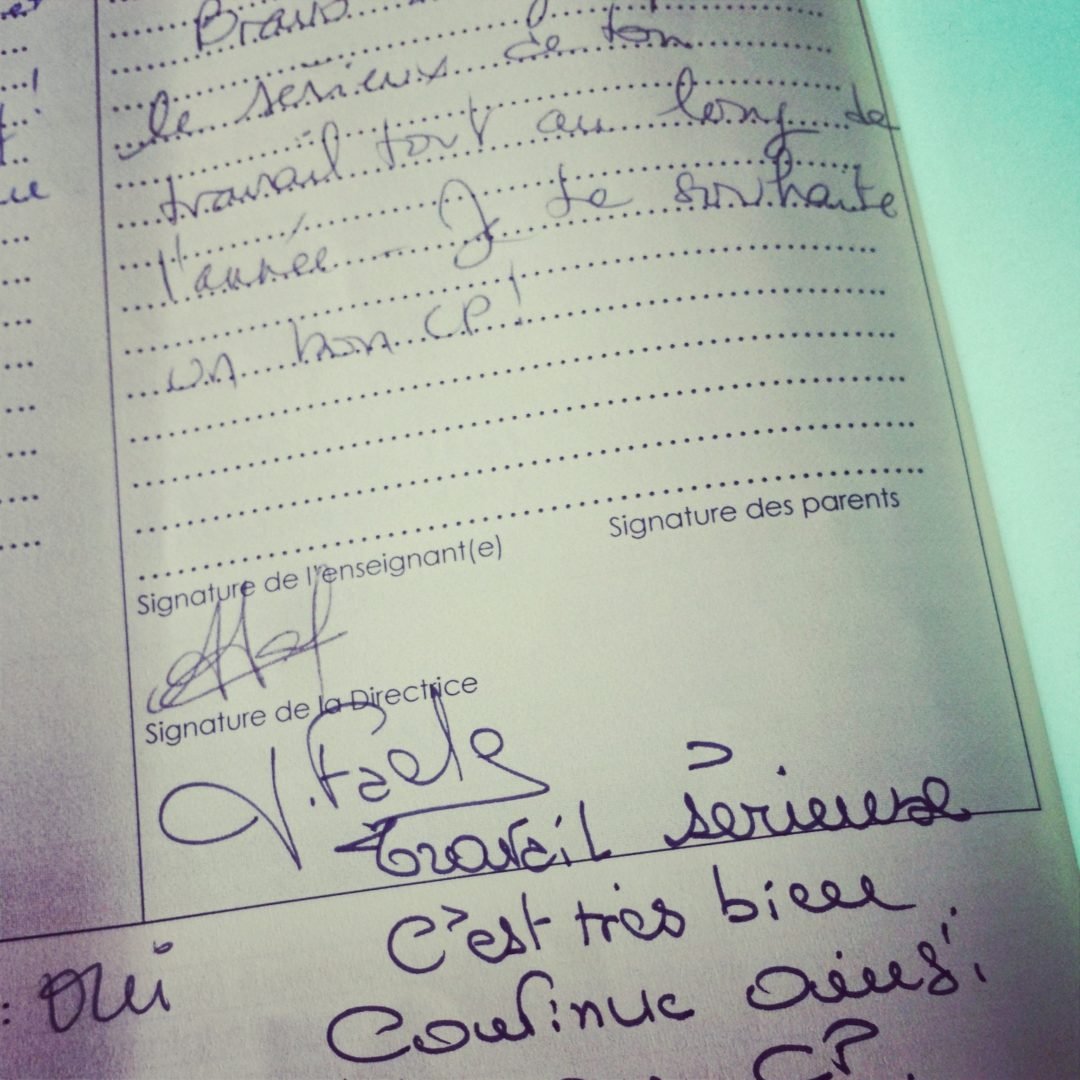 Bravo
le sérieux de ton
travail tout au long de
l'année. Je te souhaite
un bon CP!
Signature de l'enseignant(e)
Signature des parents
Signature de la Directrice
travail sérieuse
C'est très bien
: oui
Continue ainsi.
CP.